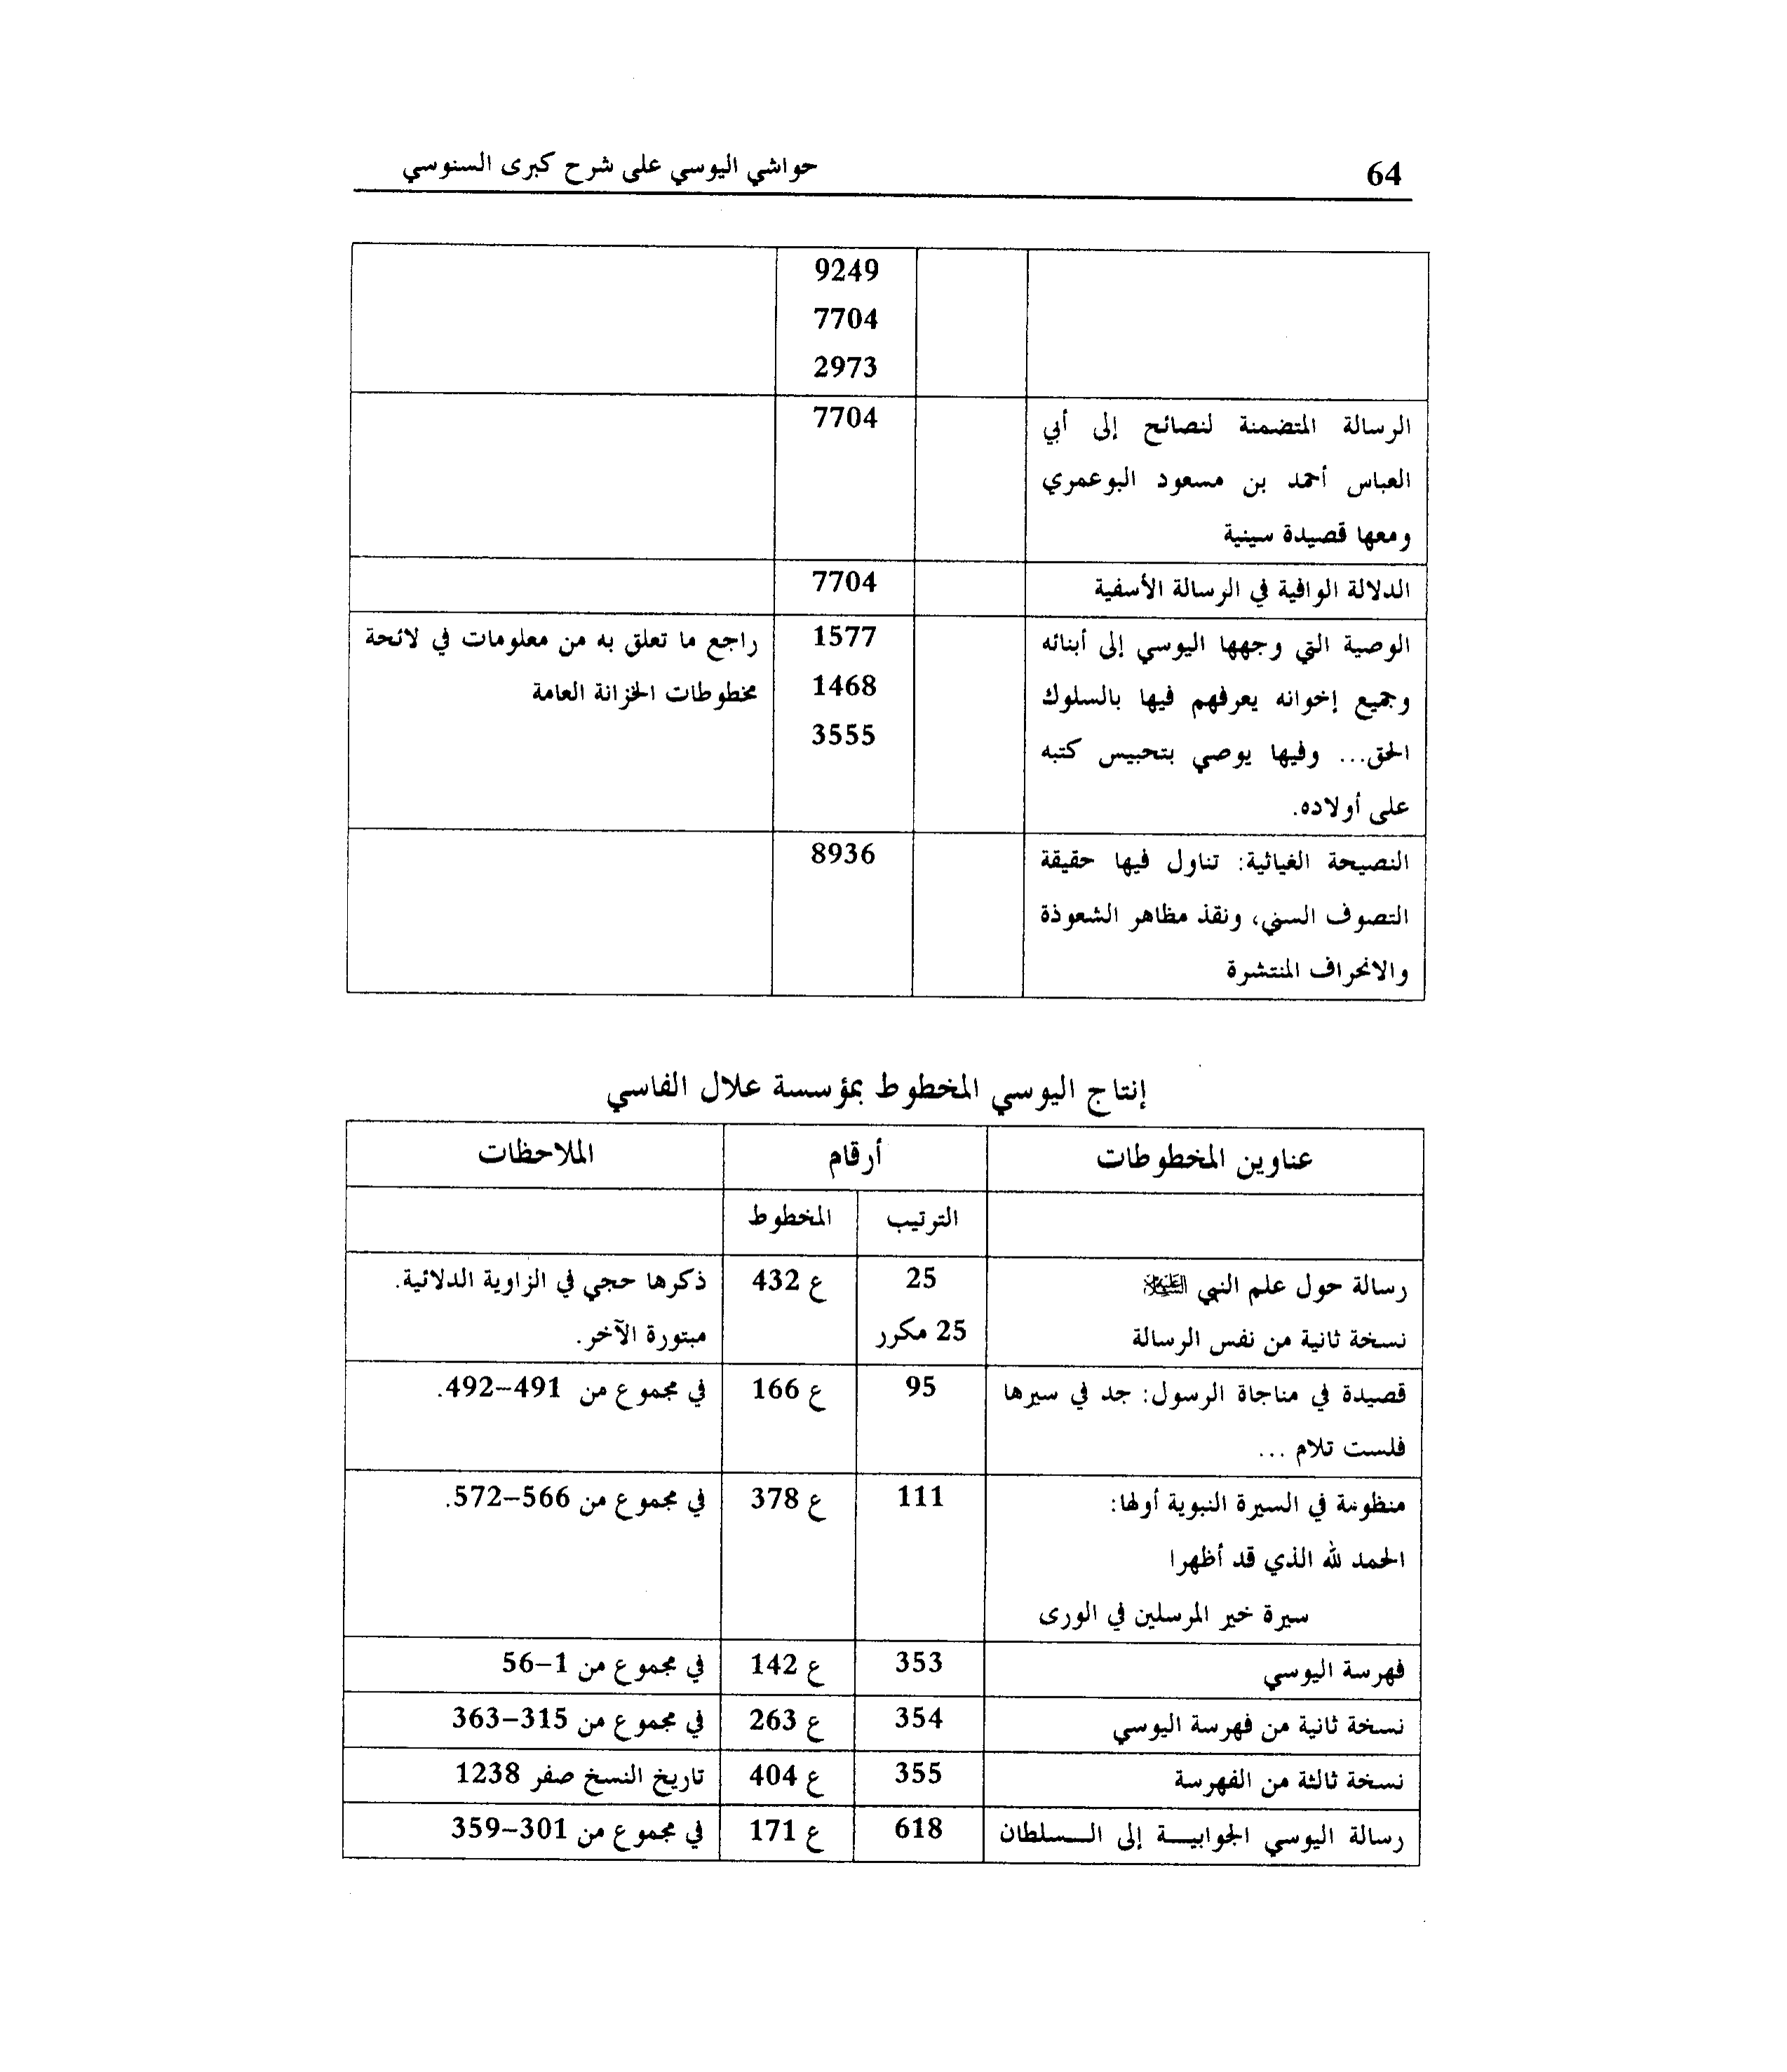 64
حواشي اليوسي على شرح كبرى السنوسي
9249
7704
2973
الرسالة المتضمنة لنصائح إلى أبي
العباس أحمد بن مسعود البوعمري
ومعها قصيدة سينية
7704
الدلالة الوافية في الرسالة الأسفية
7704
الوصية التي وجهها اليوسي إلى أبنائه
وجميع إخوانه يعرفهم فيها بالسلوك
الحق... وفيها يوصي بتحبيس كتبه
على أولاده.
1577
1468
3555
راجع ما تعلق به من معلومات في لائحة
مخطوطات الخزانة العامة
النصيحة الغياثية: تناول فيها حقيقة
التصوف السني، ونقذ مظاهر الشعوذة
والانحراف المنتشرة
8936
إنتاج اليوسي المخطوط بمؤسسة علال الفاسي
عناوين المخطوطات
أرقام
الملاحظات
الترتيب
المخطوط
رسالة حول علم النبي
نسخة ثانية من نفس الرسالة
25
25 مكرر
ع 432
ذكرها حجي في الزاوية الدلائية.
مبتورة الآخر.
قصيدة في مناجاة الرسول: جد في سيرها
فلست تلام ...
95
ع 166
في مجموع من 491-492.
منظومة في السيرة النبوية أولها:
الحمد لله الذي قد أظهرا
سيرة خير المرسلين في الورى
111
ع 378
في مجموع من 566-572.
فهرسة اليوسي
353
ع 142
في مجموع من 1-56
نسخة ثانية من فهرسة اليوسي
354
ع 263
في مجموع من 315-363
نسخة ثالثة من الفهرسة
355
ع 404
تاريخ النسخ صفر 1238
رسالة اليوسي الجوابيـــة إلى الـــسلطان
618
ع 171
في مجموع من 301-359